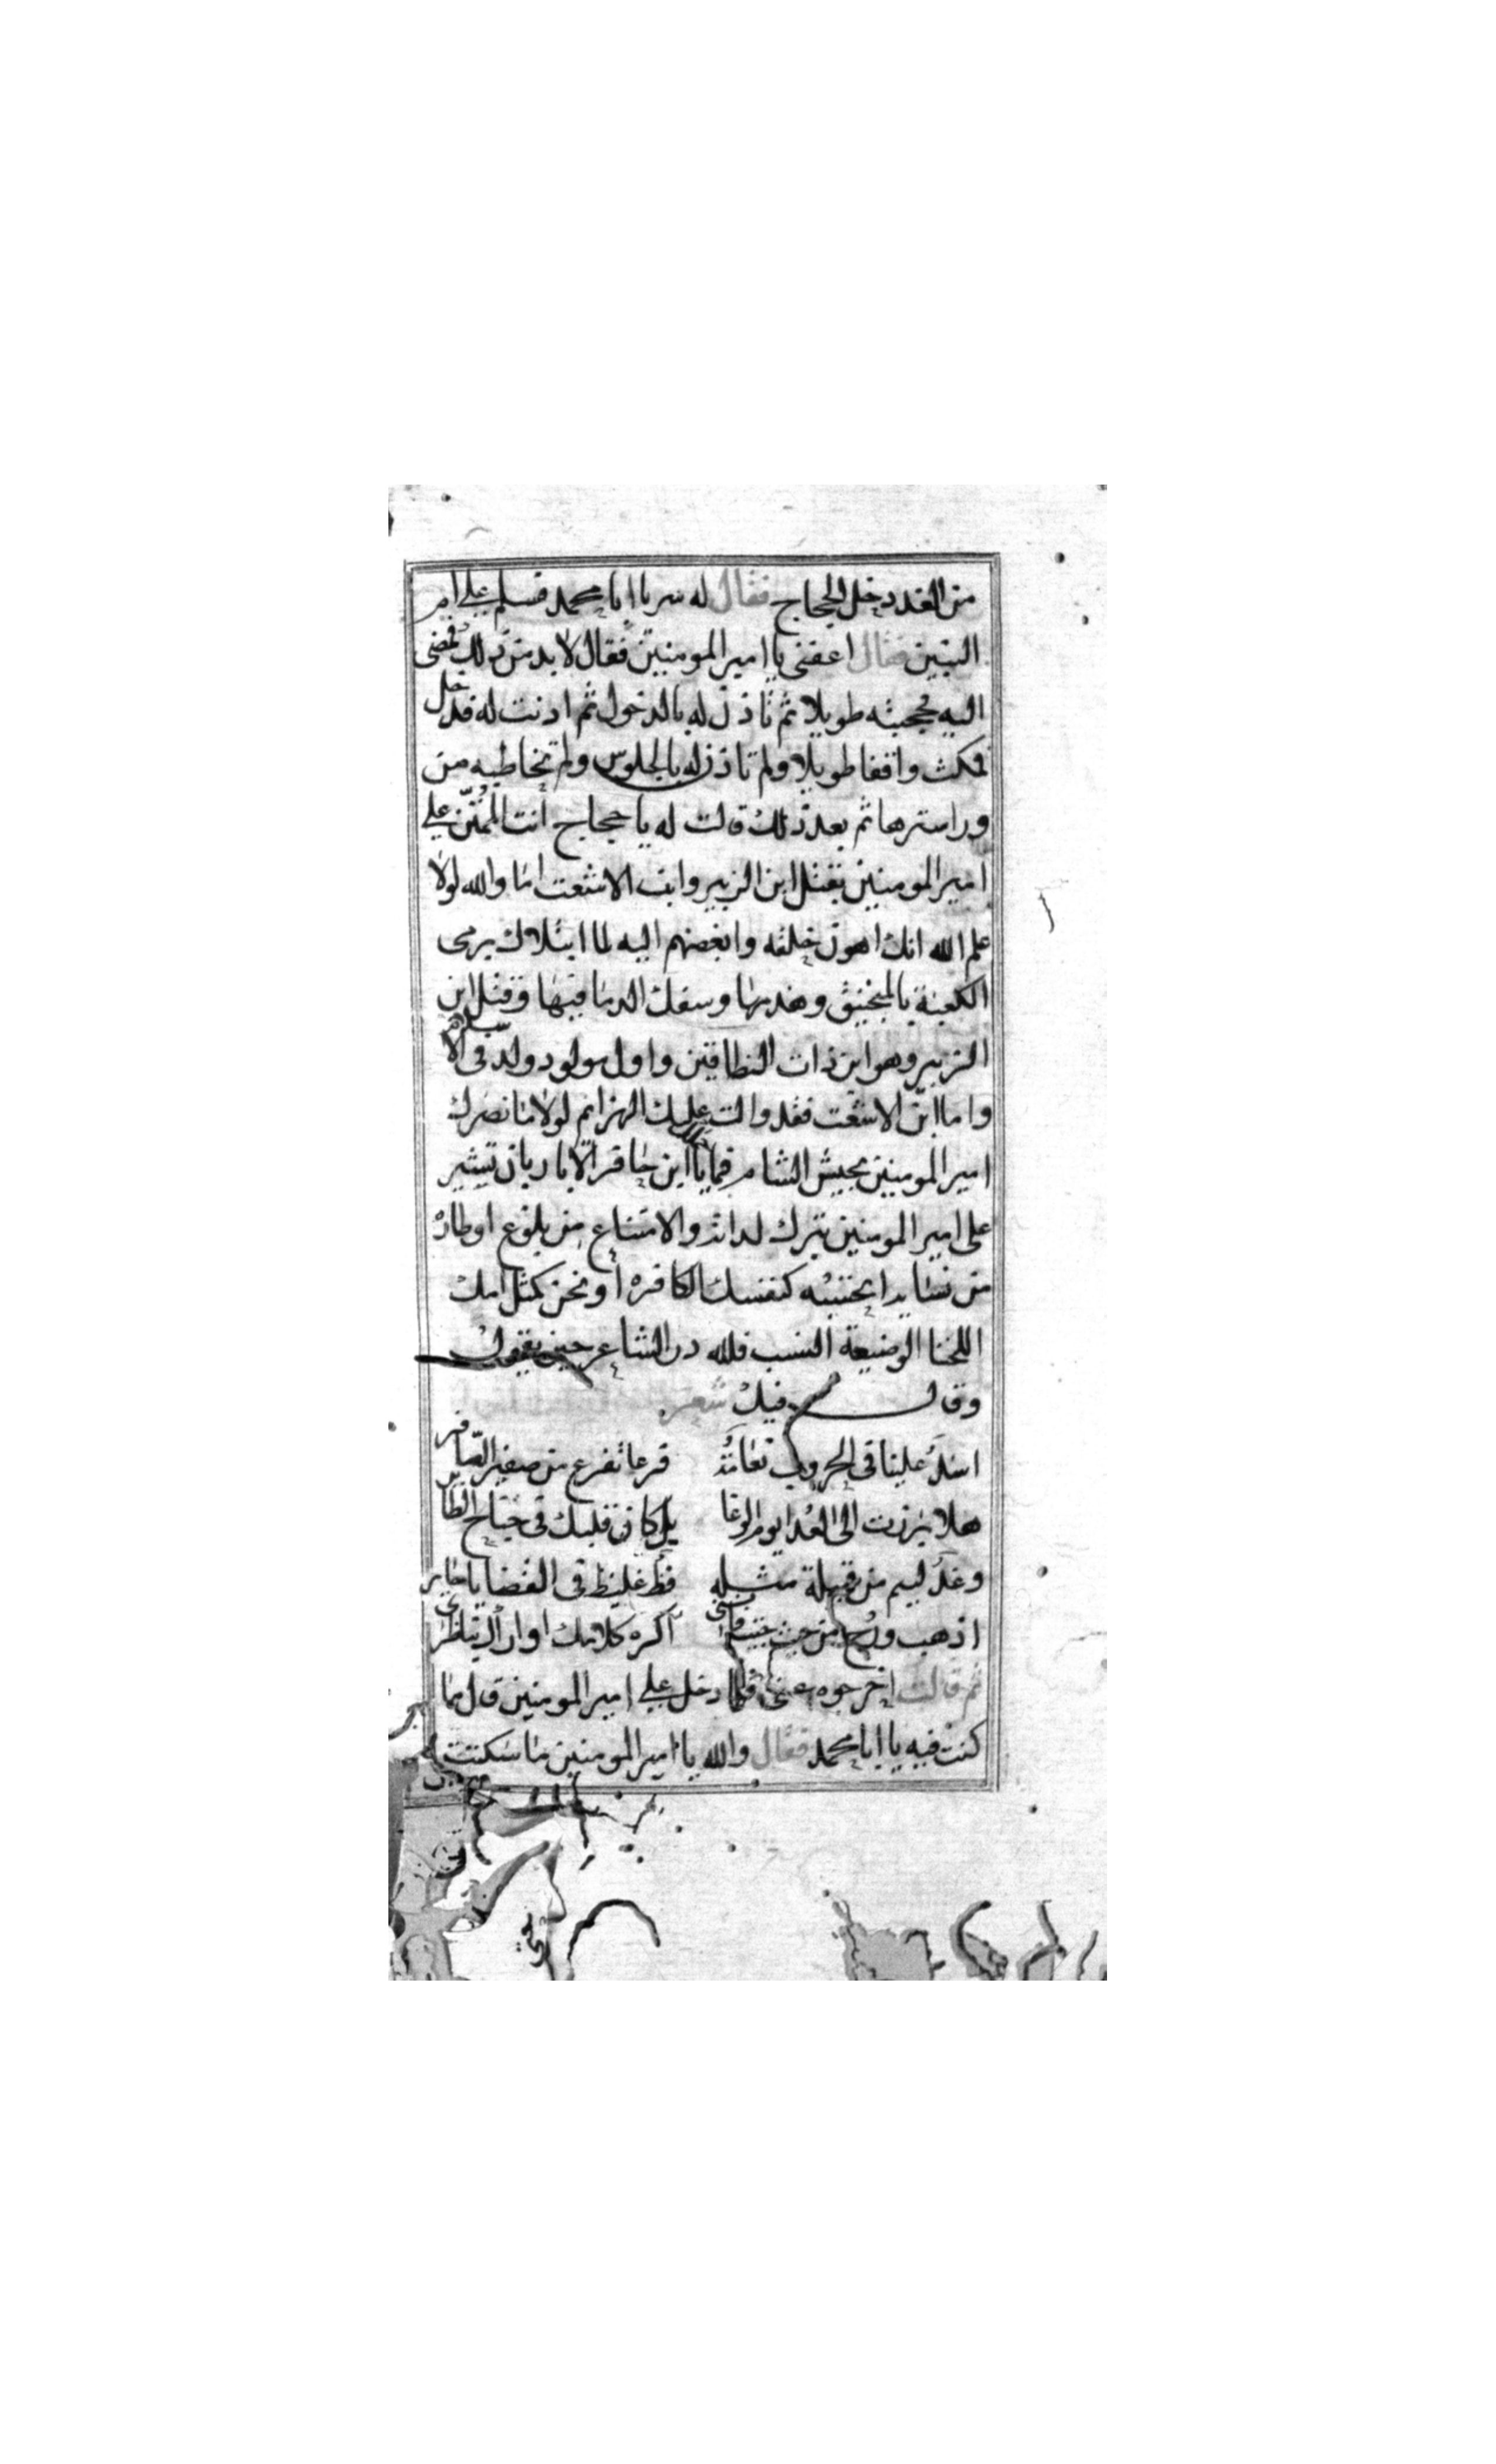 من الغد دخل الحجاج فقال له سر يا ابا محمد فسلم علي ام
البنين فقال اعفني يا امير المومنين فقال لا بد من ذلك فمضى
اليه فحجبته طويلا ثم تاذن له بالدخول ثم اذنت له فدخل
فمكث واقفا طويلا ولم تاذن له بالجلوس ولم تخاطبه من
ورا سترها ثم بعد ذلك قالت له يا حجاج أنت الممتن علي
امير المومنين بقتل ابن الزبير وابن الاشعت اما والله لولا
علم الله انك اهون خلقه وابغضهم اليه لما ابتلاك برمى
الكعبة بالمنجنيق وهدمها وسفك الدما فيها وقتل ابن
الزبير وهو ابن ذات النطاقين واول مولود ولد في الاسلام
واما ابن الاشعت فقد والت عليك الهزائم لولا ما نصرك
امير المومنين بجيش الشام فما بالك يا ابن حافر الابار بان تشير
على امير المومنين بترك لذاته والامتناع من بلوغ اوطاره
من نسايه ايجتنبه كنفسك الكافره أو نحن كمثل امك
اللخنا الوضيعة النسب فلله در الشاعر حين يقول
وقال فيك شعر
اسد علينا في الحروب نعامة قرعا تفزع من صفير الصافر
هلا برزت الى العدا يوم الوغا بل كان قلبك في جناح الطاير
وغد ليم من قبيلة مثله فظ غليظ في القضايا جاير
اذهب ورح من حيث جيت فانني اكره كلامك او اراك تناظري
ثم قالت اخرجوه عني فلما دخل علي امير المومنين قال ما
كنت فيه يا ابا محمد فقال والله يا امير المومنين ما سكتت